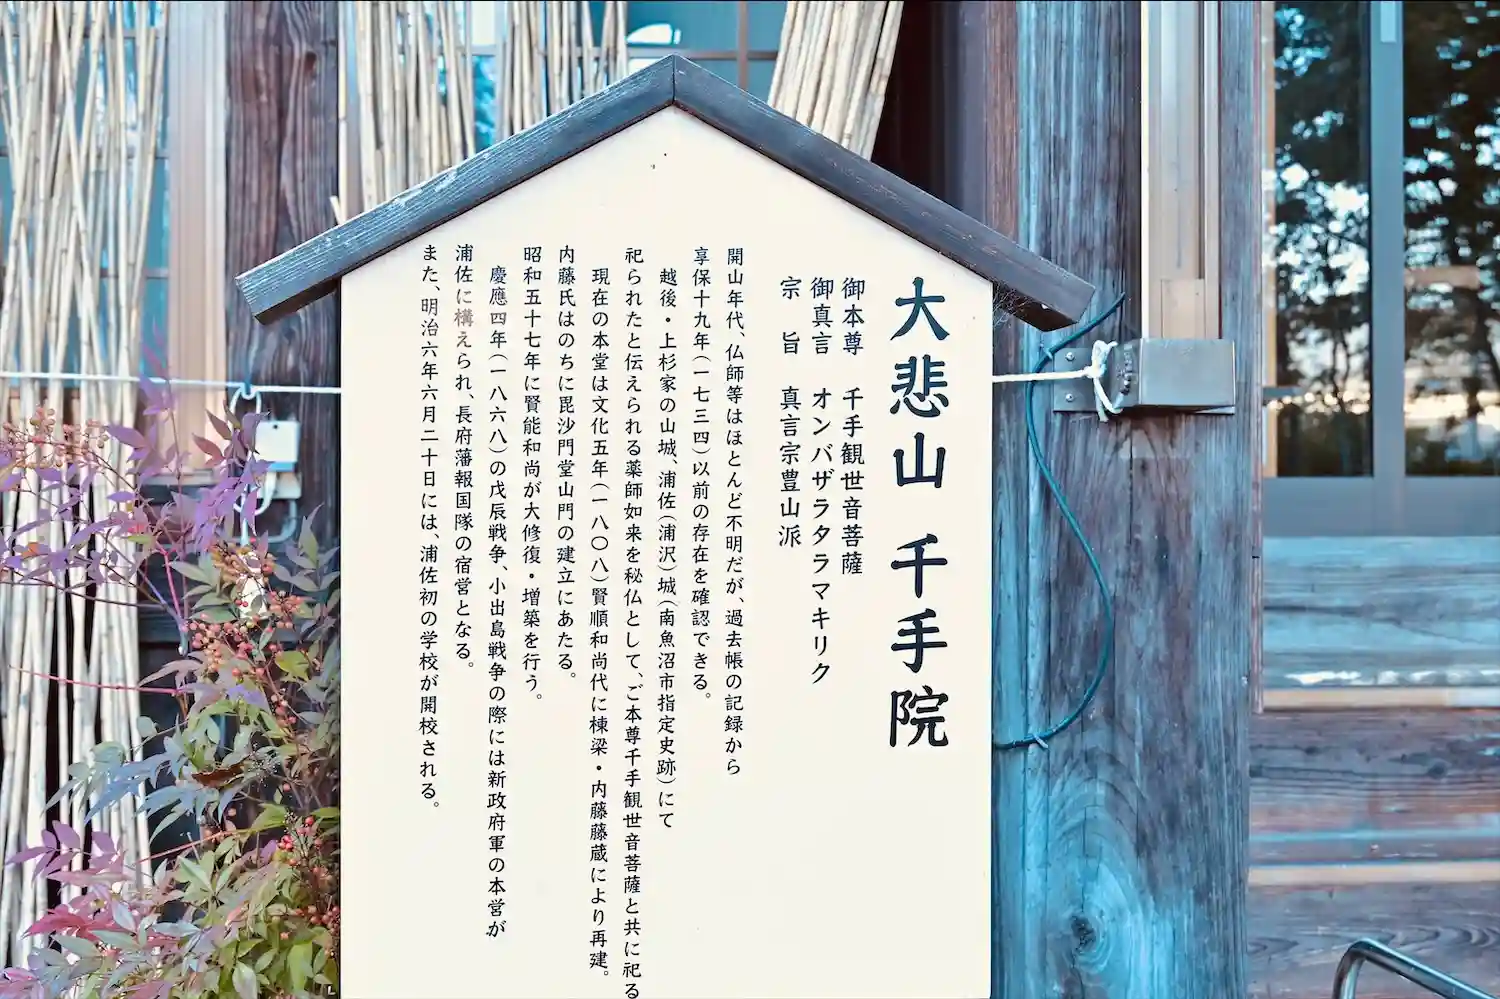 大悲山 千手院
御本尊 千手観世音菩薩
御真言 オンバザラタラマキリク
宗 旨 真言宗豊山派
開山年代、仏師等はほとんど不明だが、過去帳の記録から
享保十九年(一七三四)以前の存在を確認できる。
越後・上杉家の山城、浦佐(浦沢)城(南魚沼市指定史跡)にて
祀られたと伝えられる薬師如来を秘仏として、ご本尊千手観世音菩薩と共に祀る
現在の本堂は文化五年(一八〇八)賢順和尚代に棟梁・内藤藤蔵により再建。
内藤氏はのちに毘沙門堂山門の建立にあたる。
昭和五十七年に賢能和尚が大修復・増築を行う。
慶應四年(一八六八)の戊辰戦争、小出島戦争の際には新政府軍の本営が
浦佐に構えられ、長府藩報国隊の宿営となる。
また、明治六年六月二十日には、浦佐初の学校が開校される。